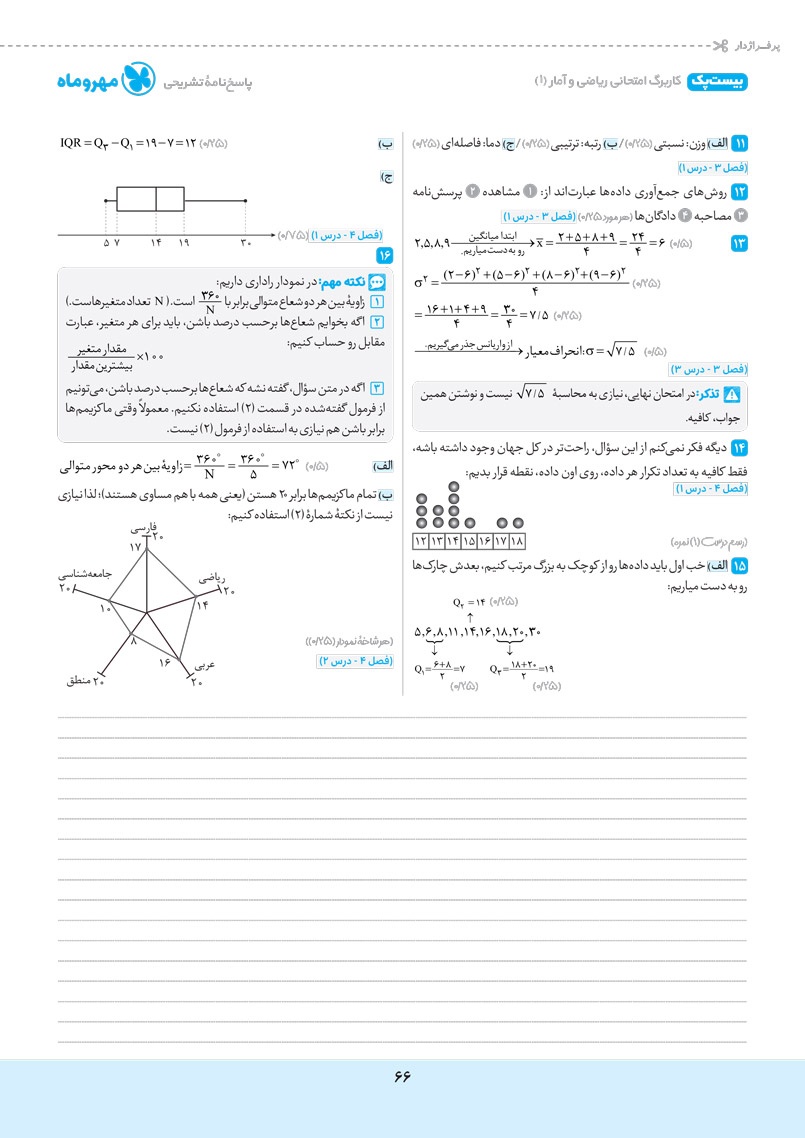 پرفراژدار
بیست‌پک کاربرگ امتحانی ریاضی و آمار (۱)
پاسخ‌نامهٔ تشریحی مهروماه
۱۱ الف) وزن: نسبتی (۰/۲۵) / ب) رتبه: ترتیبی (۰/۲۵) / ج) دما: فاصله‌ای (۰/۲۵)
(فصل ۳ - درس ۱)
۱۲ روش‌های جمع‌آوری داده‌ها عبارت‌اند از: ۱ مشاهده ۲ پرسش‌نامه
۳ مصاحبه ۴ دادگان‌ها (هر مورد ۰/۲۵) (فصل ۳ - درس ۱)
۱۳ ۲,۵,۸,۹ ابتدا میانگین رو به‌دست میاریم. → x̄ = (۲+۵+۸+۹)/۴ = ۲۴/۴ = ۶ (۰/۵)
σ² = ((۲−۶)² + (۵−۶)² + (۸−۶)² + (۹−۶)²)/۴ (۰/۲۵)
= (۱۶+۱+۴+۹)/۴ = ۳۰/۴ = ۷/۵ (۰/۲۵)
از واریانس جذر می‌گیریم. → انحراف معیار: σ = √۷/۵ (۰/۵)
(فصل ۳ - درس ۳)
تذکر: در امتحان نهایی، نیازی به محاسبهٔ √۷/۵ نیست و نوشتن همین
جواب، کافیه.
۱۴ دیگه فکر نمی‌کنم از این سؤال، راحت‌تر در کل جهان وجود داشته باشه،
فقط کافیه به تعداد تکرار هر داده، روی اون داده، نقطه قرار بدیم:
(فصل ۴ - درس ۱)
۱۲ ۱۳ ۱۴ ۱۵ ۱۶ ۱۷ ۱۸
(رسم درست (۱) نمره)
۱۵ الف) خب اول باید داده‌ها رو از کوچک به بزرگ مرتب کنیم، بعدش چارک‌ها
رو به دست میاریم:
Q۲ = ۱۴ (۰/۲۵)
۵,۶,۸,۱۱,۱۴,۱۶,۱۸,۲۰,۳۰
Q۱ = (۶+۸)/۲ = ۷ Q۳ = (۱۸+۲۰)/۲ = ۱۹
(۰/۲۵) (۰/۲۵)
ب) IQR = Q۳ − Q۱ = ۱۹ − ۷ = ۱۲ (۰/۲۵)
ج)
۵ ۷ ۱۴ ۱۹ ۳۰
(۰/۷۵) (فصل ۴ - درس ۱)
۱۶
نکته مهم: در نمودار راداری داریم:
۱ زاویهٔ بین هر دو شعاع متوالی برابر با ۳۶۰/N است. (N تعداد متغیرهاست.)
۲ اگه بخوایم شعاع‌ها برحسب درصد باشن، باید برای هر متغیر، عبارت
مقابل رو حساب کنیم:
مقدار متغیر / بیشترین مقدار ×۱۰۰
۳ اگه در متن سؤال، گفته نشه که شعاع‌ها برحسب درصد باشن، می‌تونیم
از فرمول گفته‌شده در قسمت (۲) استفاده نکنیم. معمولاً وقتی ماکزیمم‌ها
برابر باشن هم نیازی به استفاده از فرمول (۲) نیست.
الف) زاویهٔ بین هر دو محور متوالی = ۳۶۰°/N = ۳۶۰°/۵ = ۷۲° (۰/۵)
ب) تمام ماکزیمم‌ها برابر ۲۰ هستن (یعنی همه با هم مساوی هستند)؛ لذا نیازی
نیست از نکتهٔ شمارهٔ (۲) استفاده کنیم:
فارسی
۲۰
۱۷
جامعه‌شناسی
۲۰
۱۰
ریاضی
۲۰
۱۴
۸
۱۶
عربی
۲۰
منطق ۲۰
(هر شاخهٔ نمودار (۰/۲۵))
(فصل ۴ - درس ۲)
۶۶